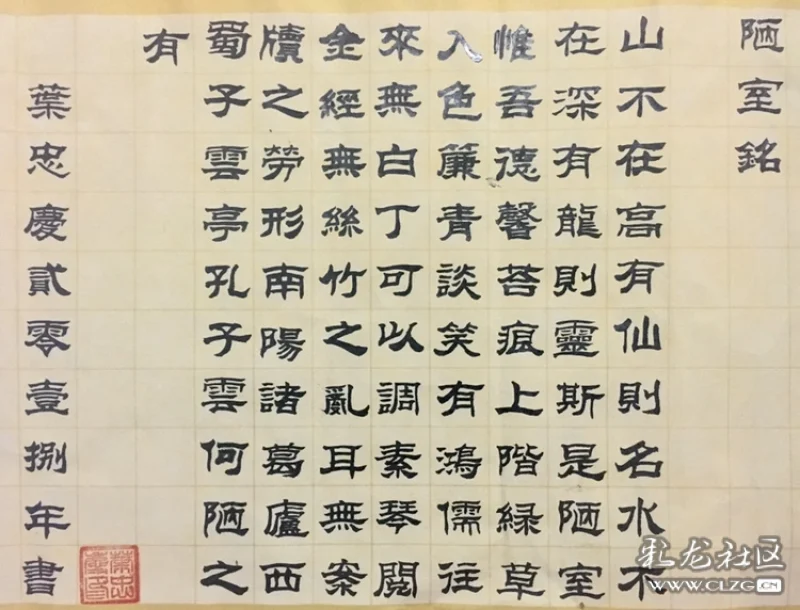 陋室銘
山不在高有仙則名水不
在深有龍則靈斯是陋室
惟吾德馨苔痕上階緑草
入色簾青談笑有鴻儒往
來無白丁可以調素琴閱
金經無絲竹之亂耳無案
牘之勞形南陽諸葛廬西
蜀子雲亭孔子雲何陋之
有
葉忠慶貳零壹捌年書
葉忠慶印
彩龙社区
WWW.CLZG.CN